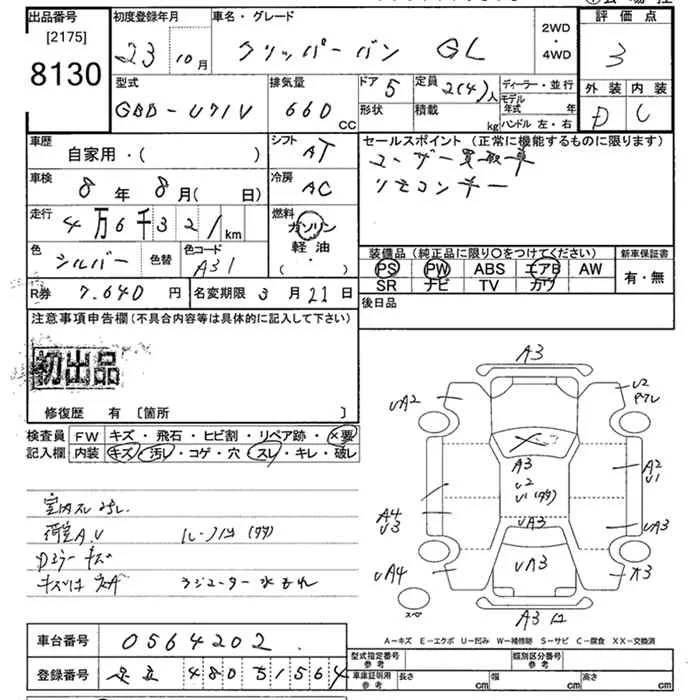 出品番号 [2175] 8130
初度登録年月 23 10月
車名・グレード クリッパーバン GL
2WD ・ 4WD
評価点 3
型式 GBD-U71V
排気量 660 CC
ドア 5
形状
定員 2(4)人
積載 kg
ディーラー・並行
モデル年式 年
ハンドル 左・右
外装 内装
D C
車歴 自家用・( )
シフト AT
車検 8年 8月(日)
冷房 AC
走行 4万6千321km
燃料 ガソリン 軽油・( )
色 シルバー 色替
色コード A31
R券 7.640円
名変期限 3月21日
セールスポイント (正常に機能するものに限ります)
ユーザー買取車
リモコンキー
装備品(純正品に限り○をつけてください)
PS PW ABS エアB AW
SR ナビ TV カワ
新車保証書
有・無
後日品
注意事項申告欄(不具合内容等は具体的に記入して下さい)
初出品
修復歴 有 [箇所 ]
検査員記入欄
FW キズ・飛石・ヒビ割・リペア跡・×要
内装 キズ・汚レ・コゲ・穴・スレ・キレ・破レ
荷室A.U ルーフ凹(タタ)
Dミラーキズ
ラジエーター水もれ
A3
UA2
U2
A3
U2
U1(タタ)
A2
U1
A4
U3
UA3
UA3
UA4
UA3
A3
スペ
A3
A－キズ E－エクボ U－凹み W－補修跡 S－サビ C－腐食 XX－交換済
車台番号 0564202
登録番号 足立 480 う 1564
型式指定番号 参考
類別区分番号 参考
車庫証明用 参考
長さ cm
幅 cm
高さ cm